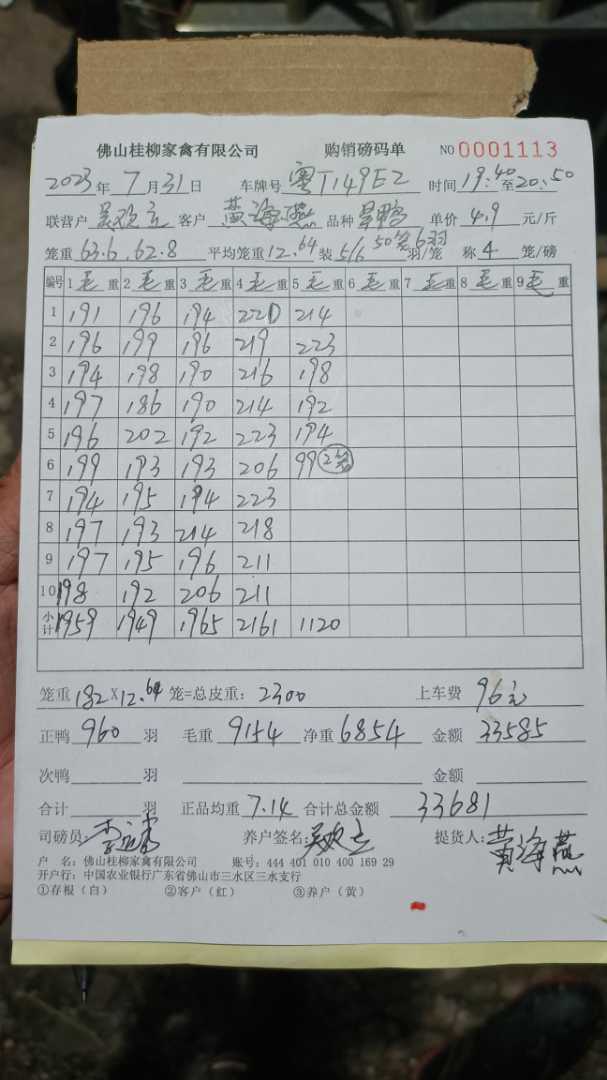 佛山桂柳家禽有限公司 购销磅码单 NO 0001113
2023年7月31日 车牌号 粤T149E2 时间 19:40至20:50
联营户 吴欢立 客户 黄海燕 品种 鸭 单价 4.9 元/斤
笼重 63.6 .62.8 平均笼重 12.64 装 5/6 50笼6羽 羽/笼 称 4 笼/磅
编号 1毛重 2毛重 3毛重 4毛重 5毛重 6毛重 7毛重 8毛重 9毛重
1 191 196 194 220 214
2 196 199 196 219 223
3 194 198 190 216 198
4 197 186 190 214 192
5 196 202 192 223 194
6 199 193 193 206 99 2笼
7 194 195 194 223
8 197 193 214 218
9 197 195 196 211
10 198 192 206 211
小计 1959 1949 1965 2161 1120
笼重 182×12.64 笼=总皮重: 2300 上车费 96元
正鸭 960 羽 毛重 9154 净重 6854 金额 33585
次鸭 羽 金额
合计 羽 正品均重 7.14 合计总金额 33681
司磅员: 养户签名: 吴欢立 提货人: 黄海燕
户 名: 佛山桂柳家禽有限公司 账号: 444 401 010 400 169 29
开户行: 中国农业银行广东省佛山市三水区三水支行
①存根(白) ②客户(红) ③养户(黄)